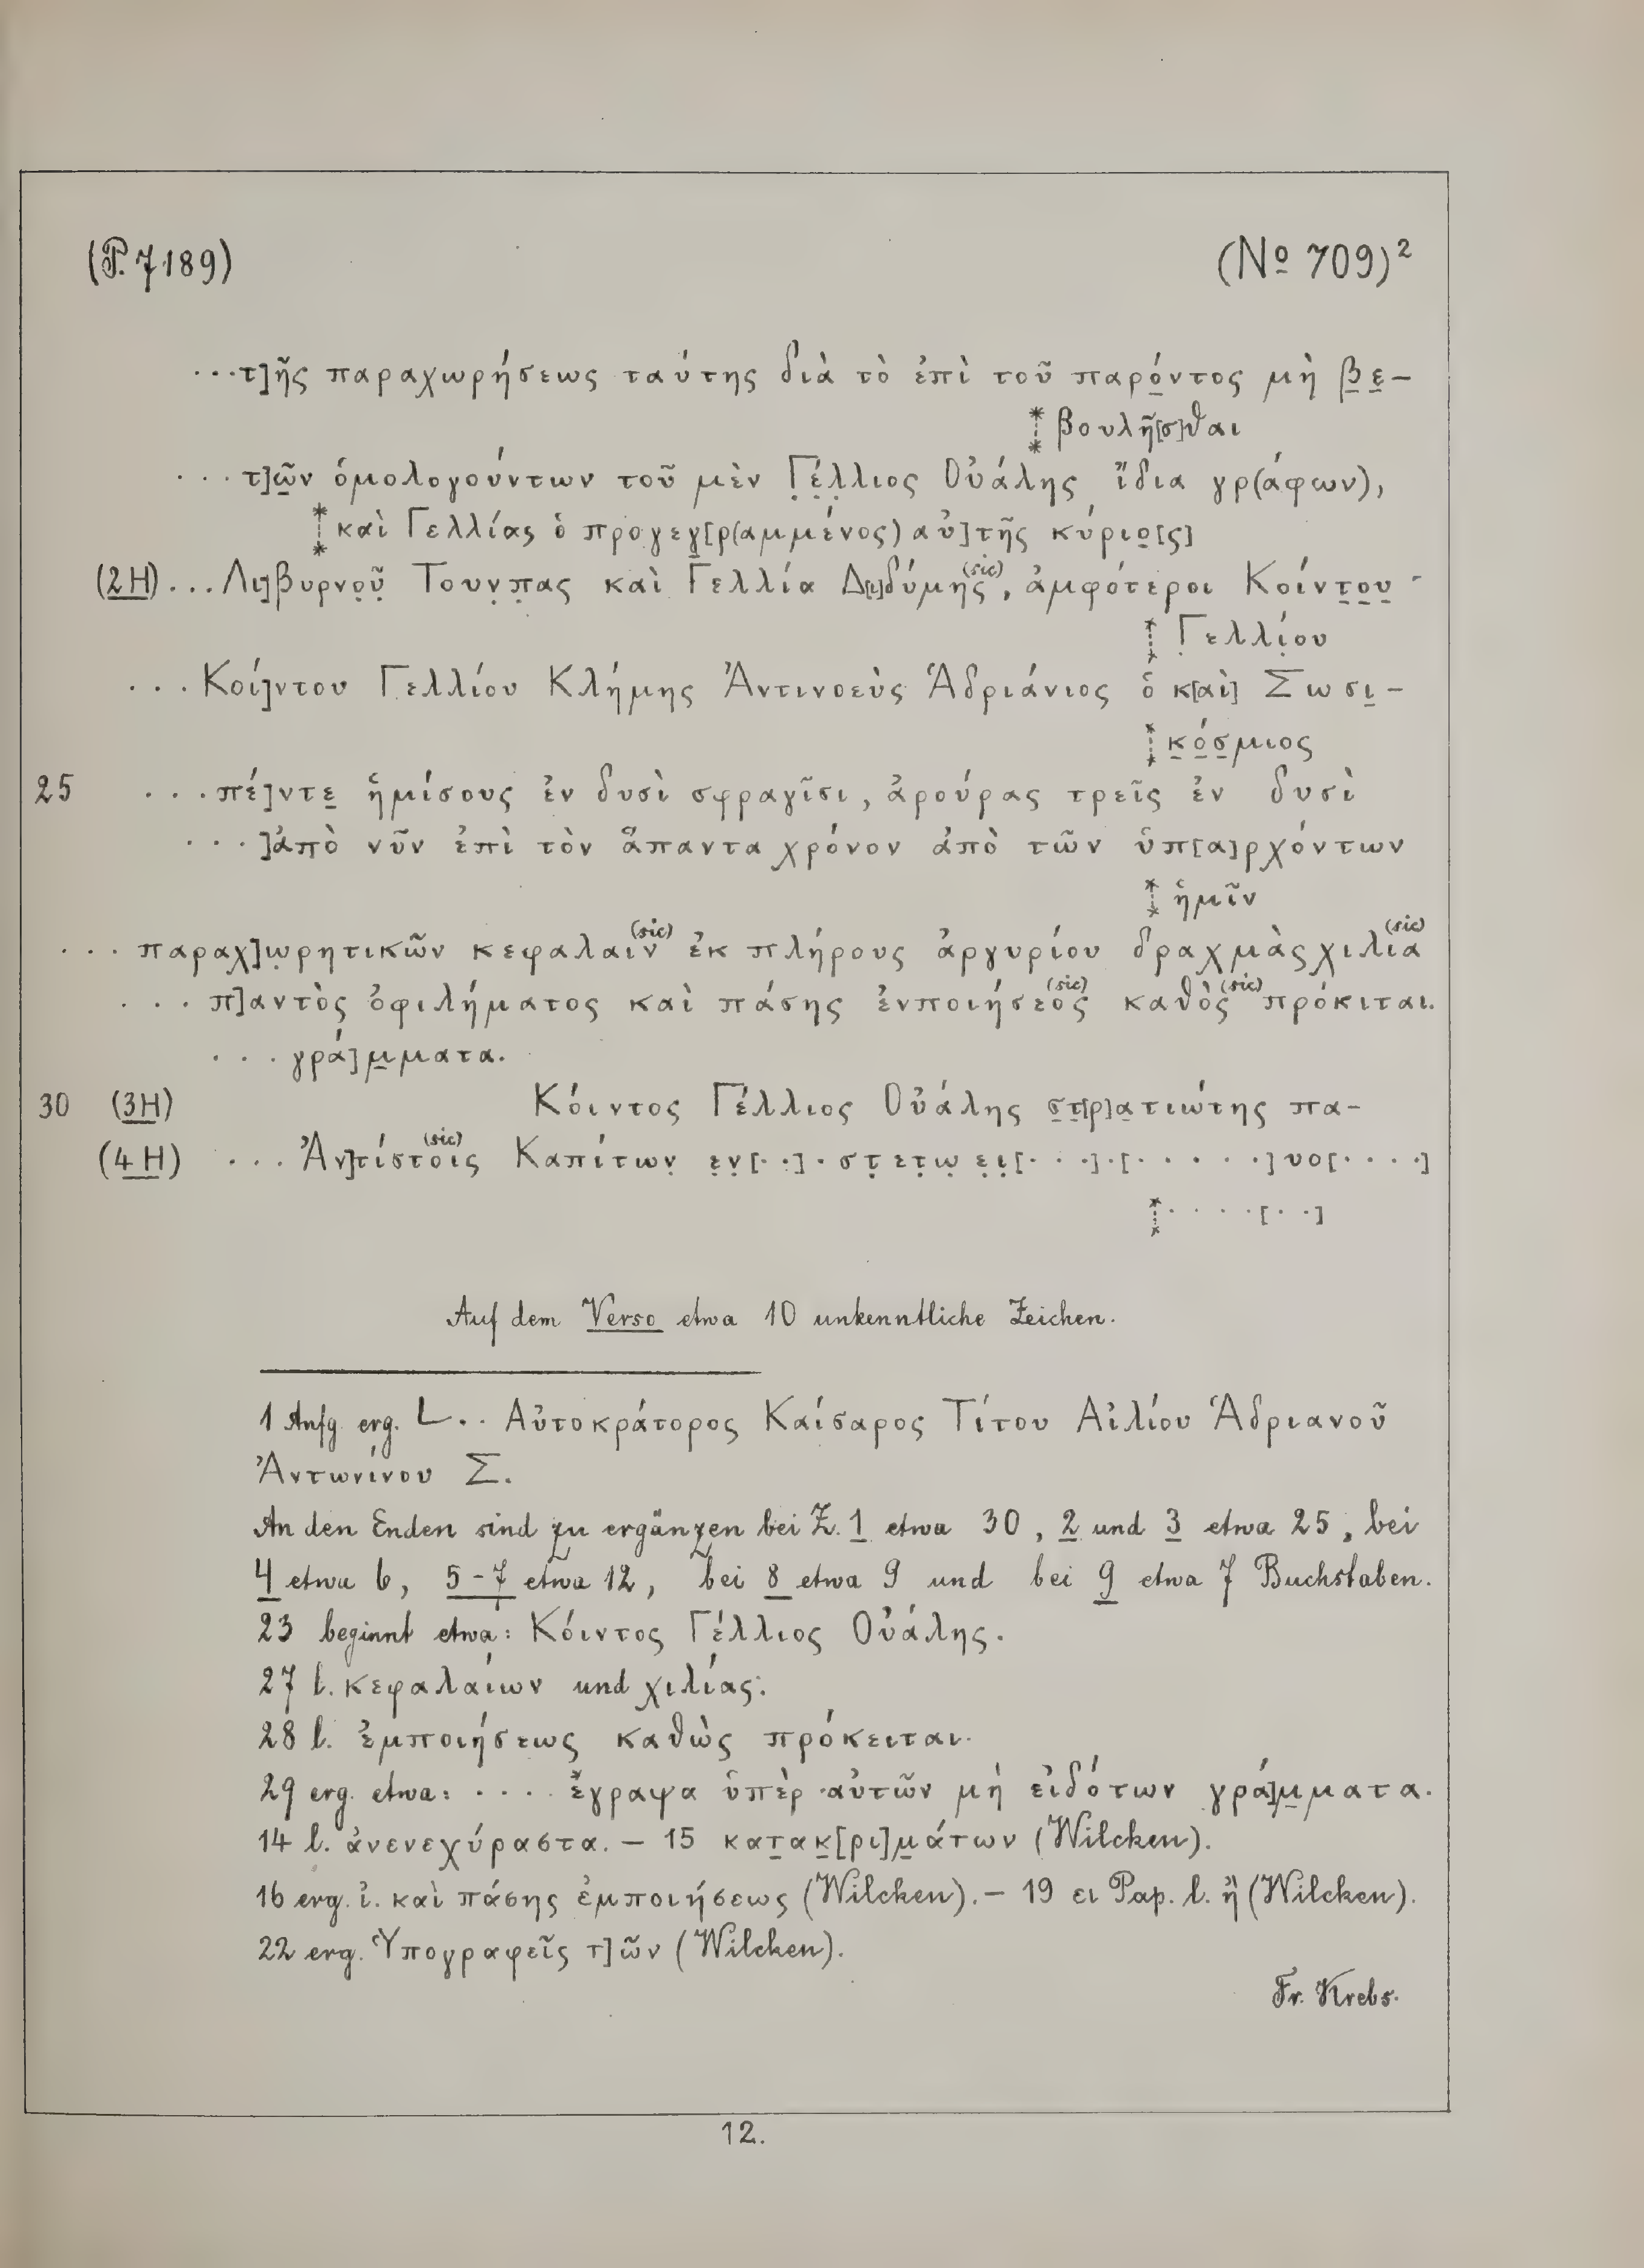 (P. 7189) (No 709)²
...τ]ῆς παραχωρήσεως ταύτης διὰ τὸ ἐπὶ τοῦ παρόντος μὴ βε-
βουλῆ[σ]θαι
...τ]ῶν ὁμολογούντων τοῦ μὲν Γέλλιος Οὐάλης ἴδια γρ(άφων),
καὶ Γελλίας ὁ προγεγ[ρ(αμμένος) αὐ]τῆς κύριο[ς]
(2H)...Λι]βυρνοῦ Τουνπας καὶ Γελλία Δ[ι]δύμης(sic), ἀμφότεροι Κοίντου
Γελλίου
...Κοί]ντου Γελλίου Κλήμης Ἀντινοεὺς Ἁδριάνιος ὁ κ[αὶ] Σωσι-
κόσμιος
25 ...πέ]ντε ἡμίσους ἐν δυσὶ σφραγῖσι, ἀρούρας τρεῖς ἐν δυσὶ
...]ἀπὸ νῦν ἐπὶ τὸν ἅπαντα χρόνον ἀπὸ τῶν ὑπ[α]ρχόντων
ἡμῖν
... παραχ]ωρητικῶν κεφαλαιν(sic) ἐκ πλήρους ἀργυρίου δραχμὰς χιλια(sic)
... π]αντὸς ὀφιλήματος καὶ πάσης ἐνποιήσεος(sic) καθὸς(sic) πρόκιται.
...γρά]μματα.
30 (3H) Κόιντος Γέλλιος Οὐάλης στ[ρ]ατιώτης πα-
(4H) ...Ἀν]τίστοις(sic) Καπίτων εν[..].στετω ει[...].[.....]υο[....]
....[..]
Auf dem Verso etwa 10 unkenntliche Zeichen.
1 Anfg. erg. L.. Αὐτοκράτορος Καίσαρος Τίτου Αἰλίου Ἁδριανοῦ
Ἀντωνίνου Σ.
An den Enden sind zu ergänzen bei Z. 1 etwa 30, 2 und 3 etwa 25, bei
4 etwa 6, 5-7 etwa 12, bei 8 etwa 9 und bei 9 etwa 7 Buchstaben.
23 beginnt etwa: Κόιντος Γέλλιος Οὐάλης.
27 l. κεφαλαίων und χιλίας.
28 l. ἐμποιήσεως καθὼς πρόκειται.
29 erg. etwa: .... ἔγραψα ὑπὲρ αὐτῶν μὴ εἰδότων γρά]μματα.
14 l. ἀνενεχύραστα. — 15 κατακ[ρι]μάτων (Wilcken).
16 erg. ἰ. καὶ πάσης ἐμποιήσεως (Wilcken). — 19 ει Pap. l. ἢ (Wilcken).
22 erg. Ὑπογραφεῖς τ]ῶν (Wilcken).
Fr. Krebs.
12.